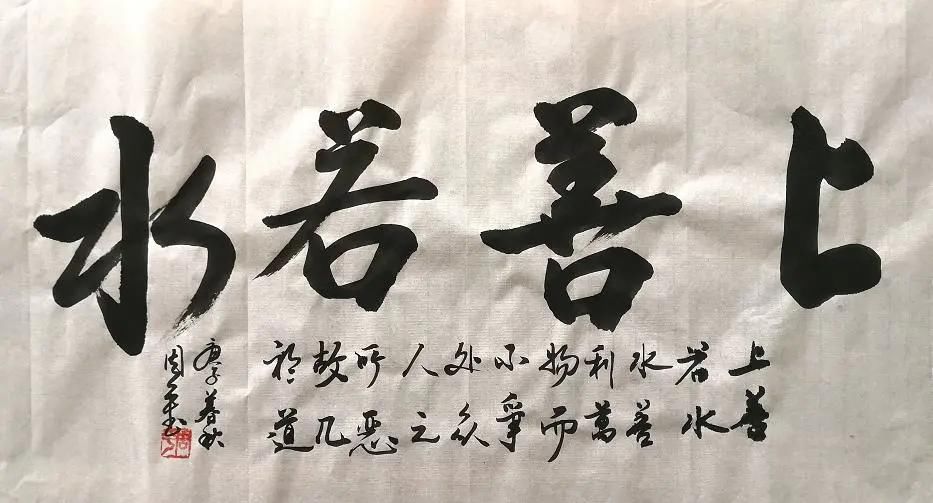 上善若水
上善
若水
水善
利萬
物而
不爭
处众
人之
所恶
故几
於道
庚子暮秋
周